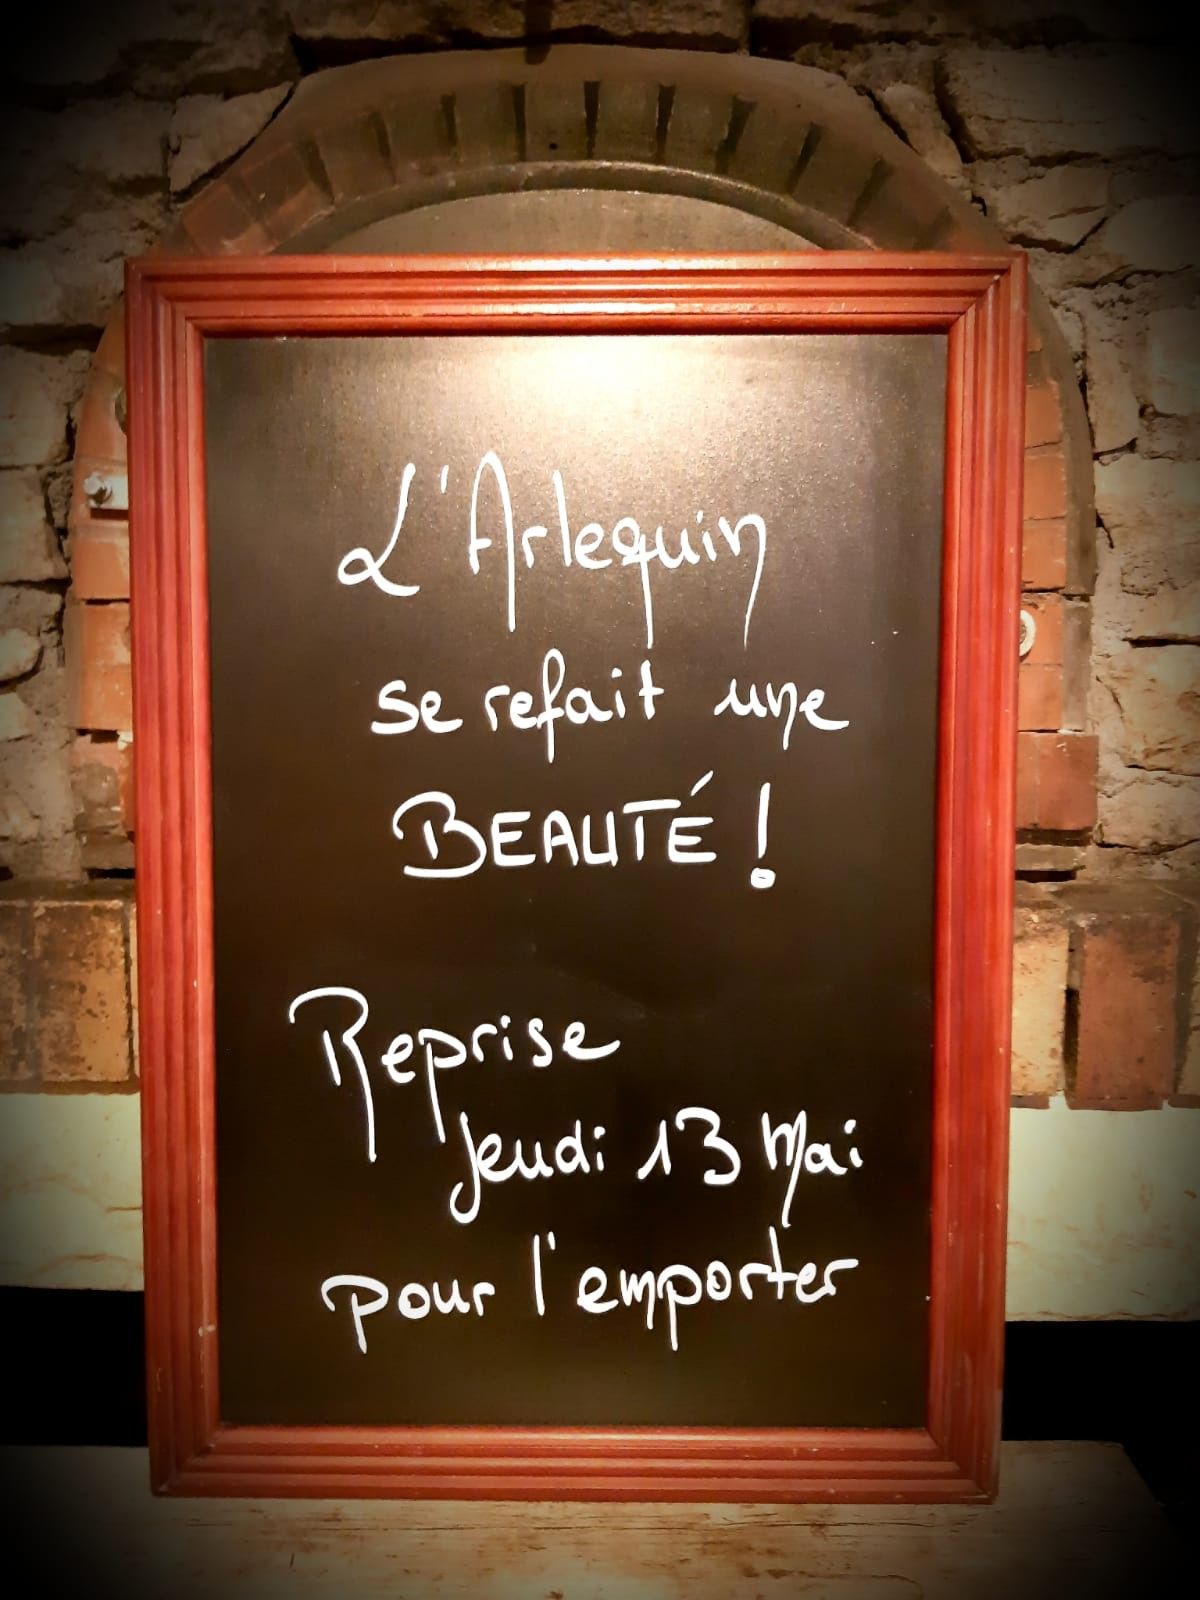 L'Arlequin
se refait une
BEAUTÉ !
Reprise
Jeudi 13 Mai
pour l'emporter